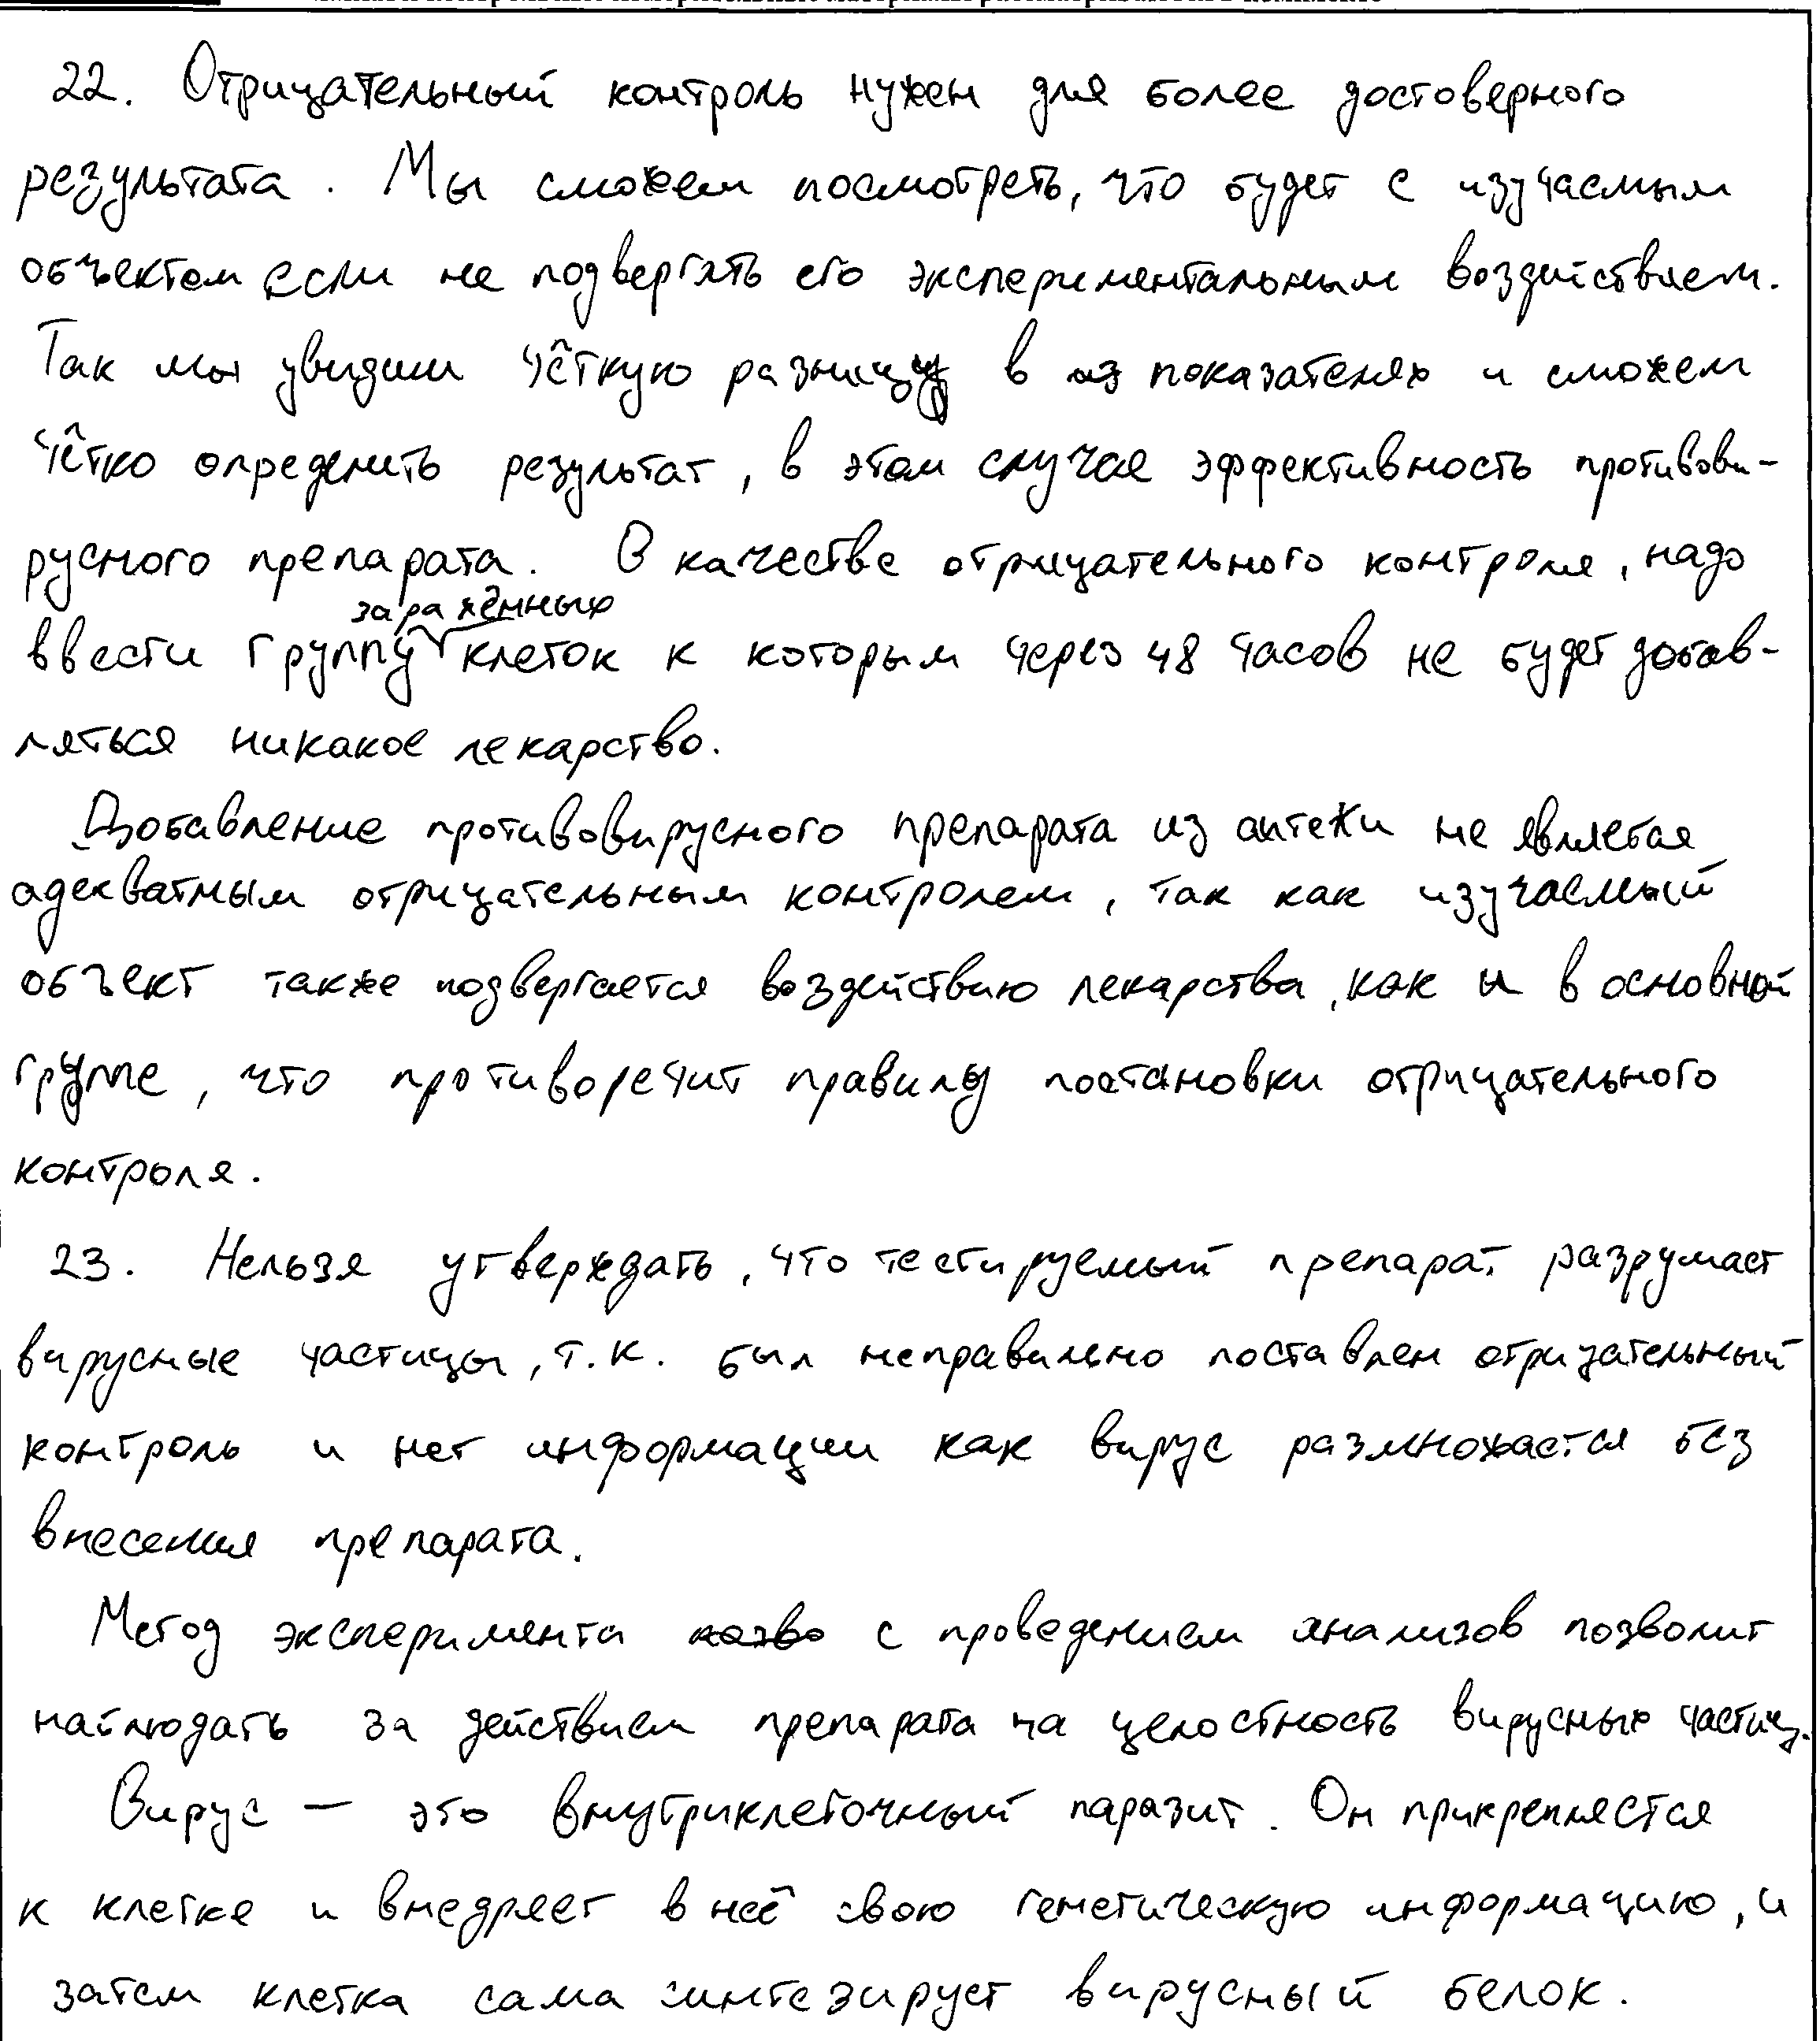 22. Отрицательный контроль нужен для более достоверного
результата. Мы сможем посмотреть, что будет с изучаемым
объектом если не подвергать его экспериментальным воздействием.
Так мы увидим чёткую разницу в показателях и сможем
чётко определить результат, в этом случае эффективность противови-
русного препарата. В качестве отрицательного контроля, надо
заражённых
ввести группу клеток к которым через 48 часов не будет добав-
ляться никакое лекарство.
Добавление противовирусного препарата из аптеки не является
адекватным отрицательным контролем, так как изучаемый
объект также подвергается воздействию лекарства, как и в основной
группе, что противоречит правилу постановки отрицательного
контроля.
23. Нельзя утверждать, что тестируемый препарат разрушает
вирусные частицы, т.к. был неправильно поставлен отрицательный
контроль и нет информации как вирус размножается без
внесения препарата.
Метод эксперимента с проведением анализов позволит
наблюдать за действием препарата на целостность вирусных частиц.
Вирус — это внутриклеточный паразит. Он прикрепляется
к клетке и внедряет в неё свою генетическую информацию, и
затем клетка сама синтезирует вирусный белок.